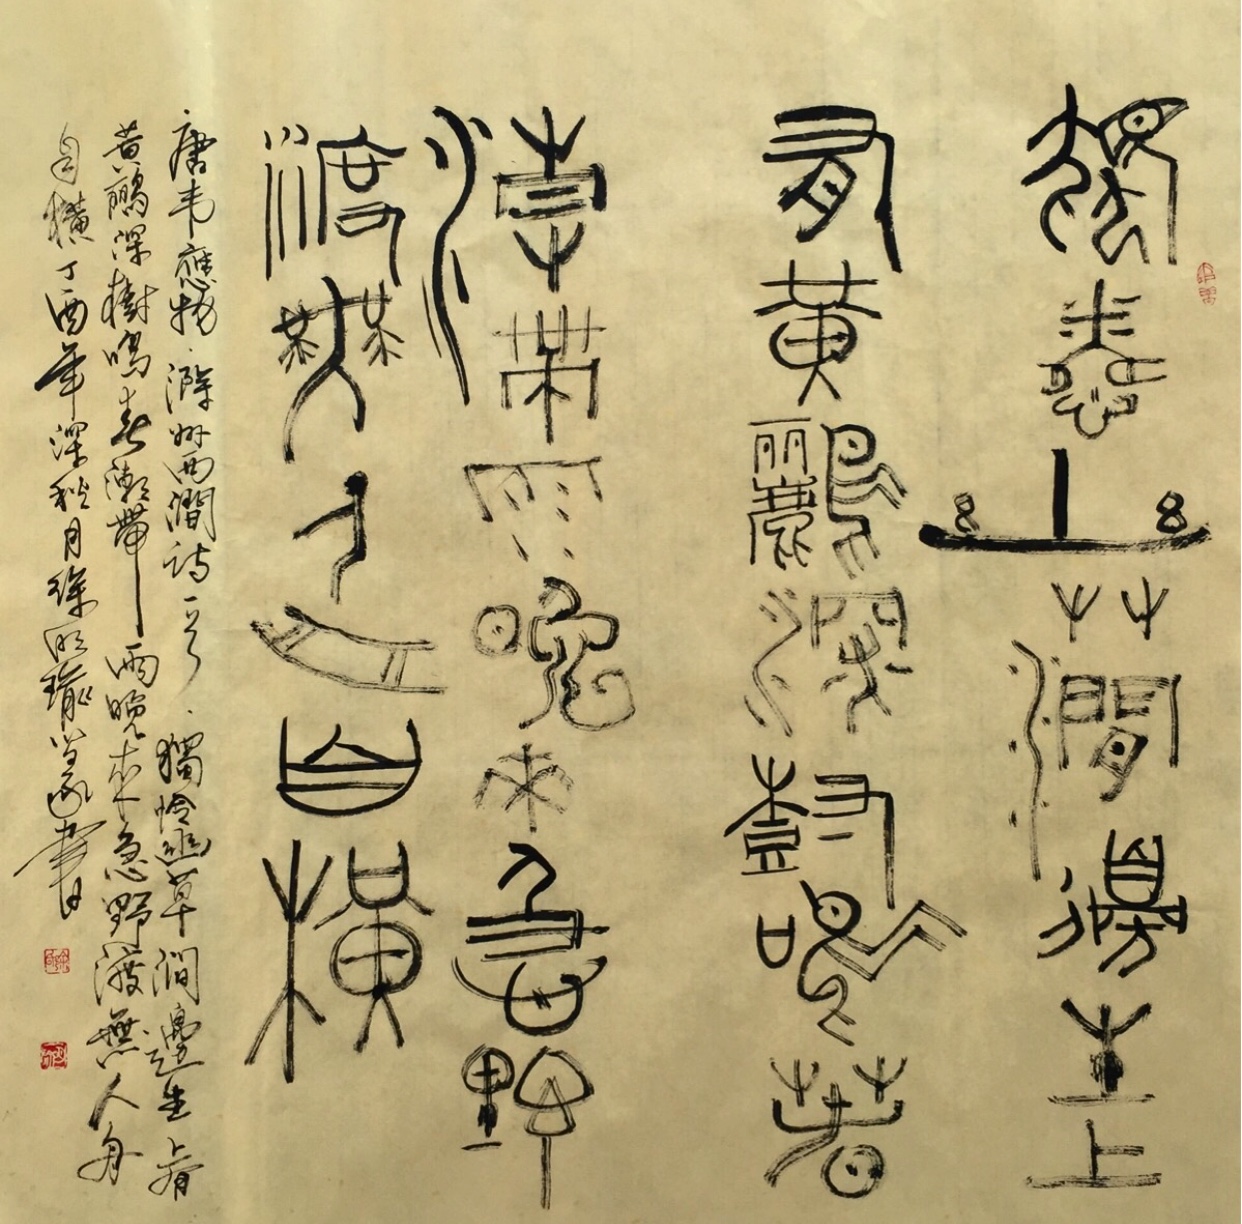 独怜幽草澗邊生上
有黄鸝深樹鳴春
潮帶雨晚来急野
渡無人舟自横
唐韦應物滁州西澗诗一首獨怜幽草澗邊生上有
黄鸝深樹鳴春潮帶雨晚来急野渡無人舟
自横丁酉年深秋月徐